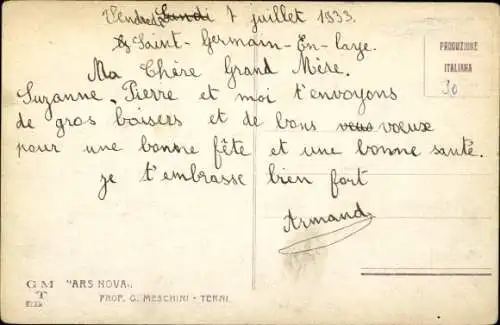 Vendredi Lundi 7 juillet 1933.
Saint-Germain-En-laye.
PRODUZIONE
ITALIANA
30
Ma Chère Grand Mère.
Suzanne, Pierre et moi t'envoyons
de gros baisers et de bons vous voeux
pour une bonne fête et une bonne santé.
je t'embrasse bien fort
Armand
GM
T
"ARS NOVA"
PROF. G. MESCHINI - TERNI